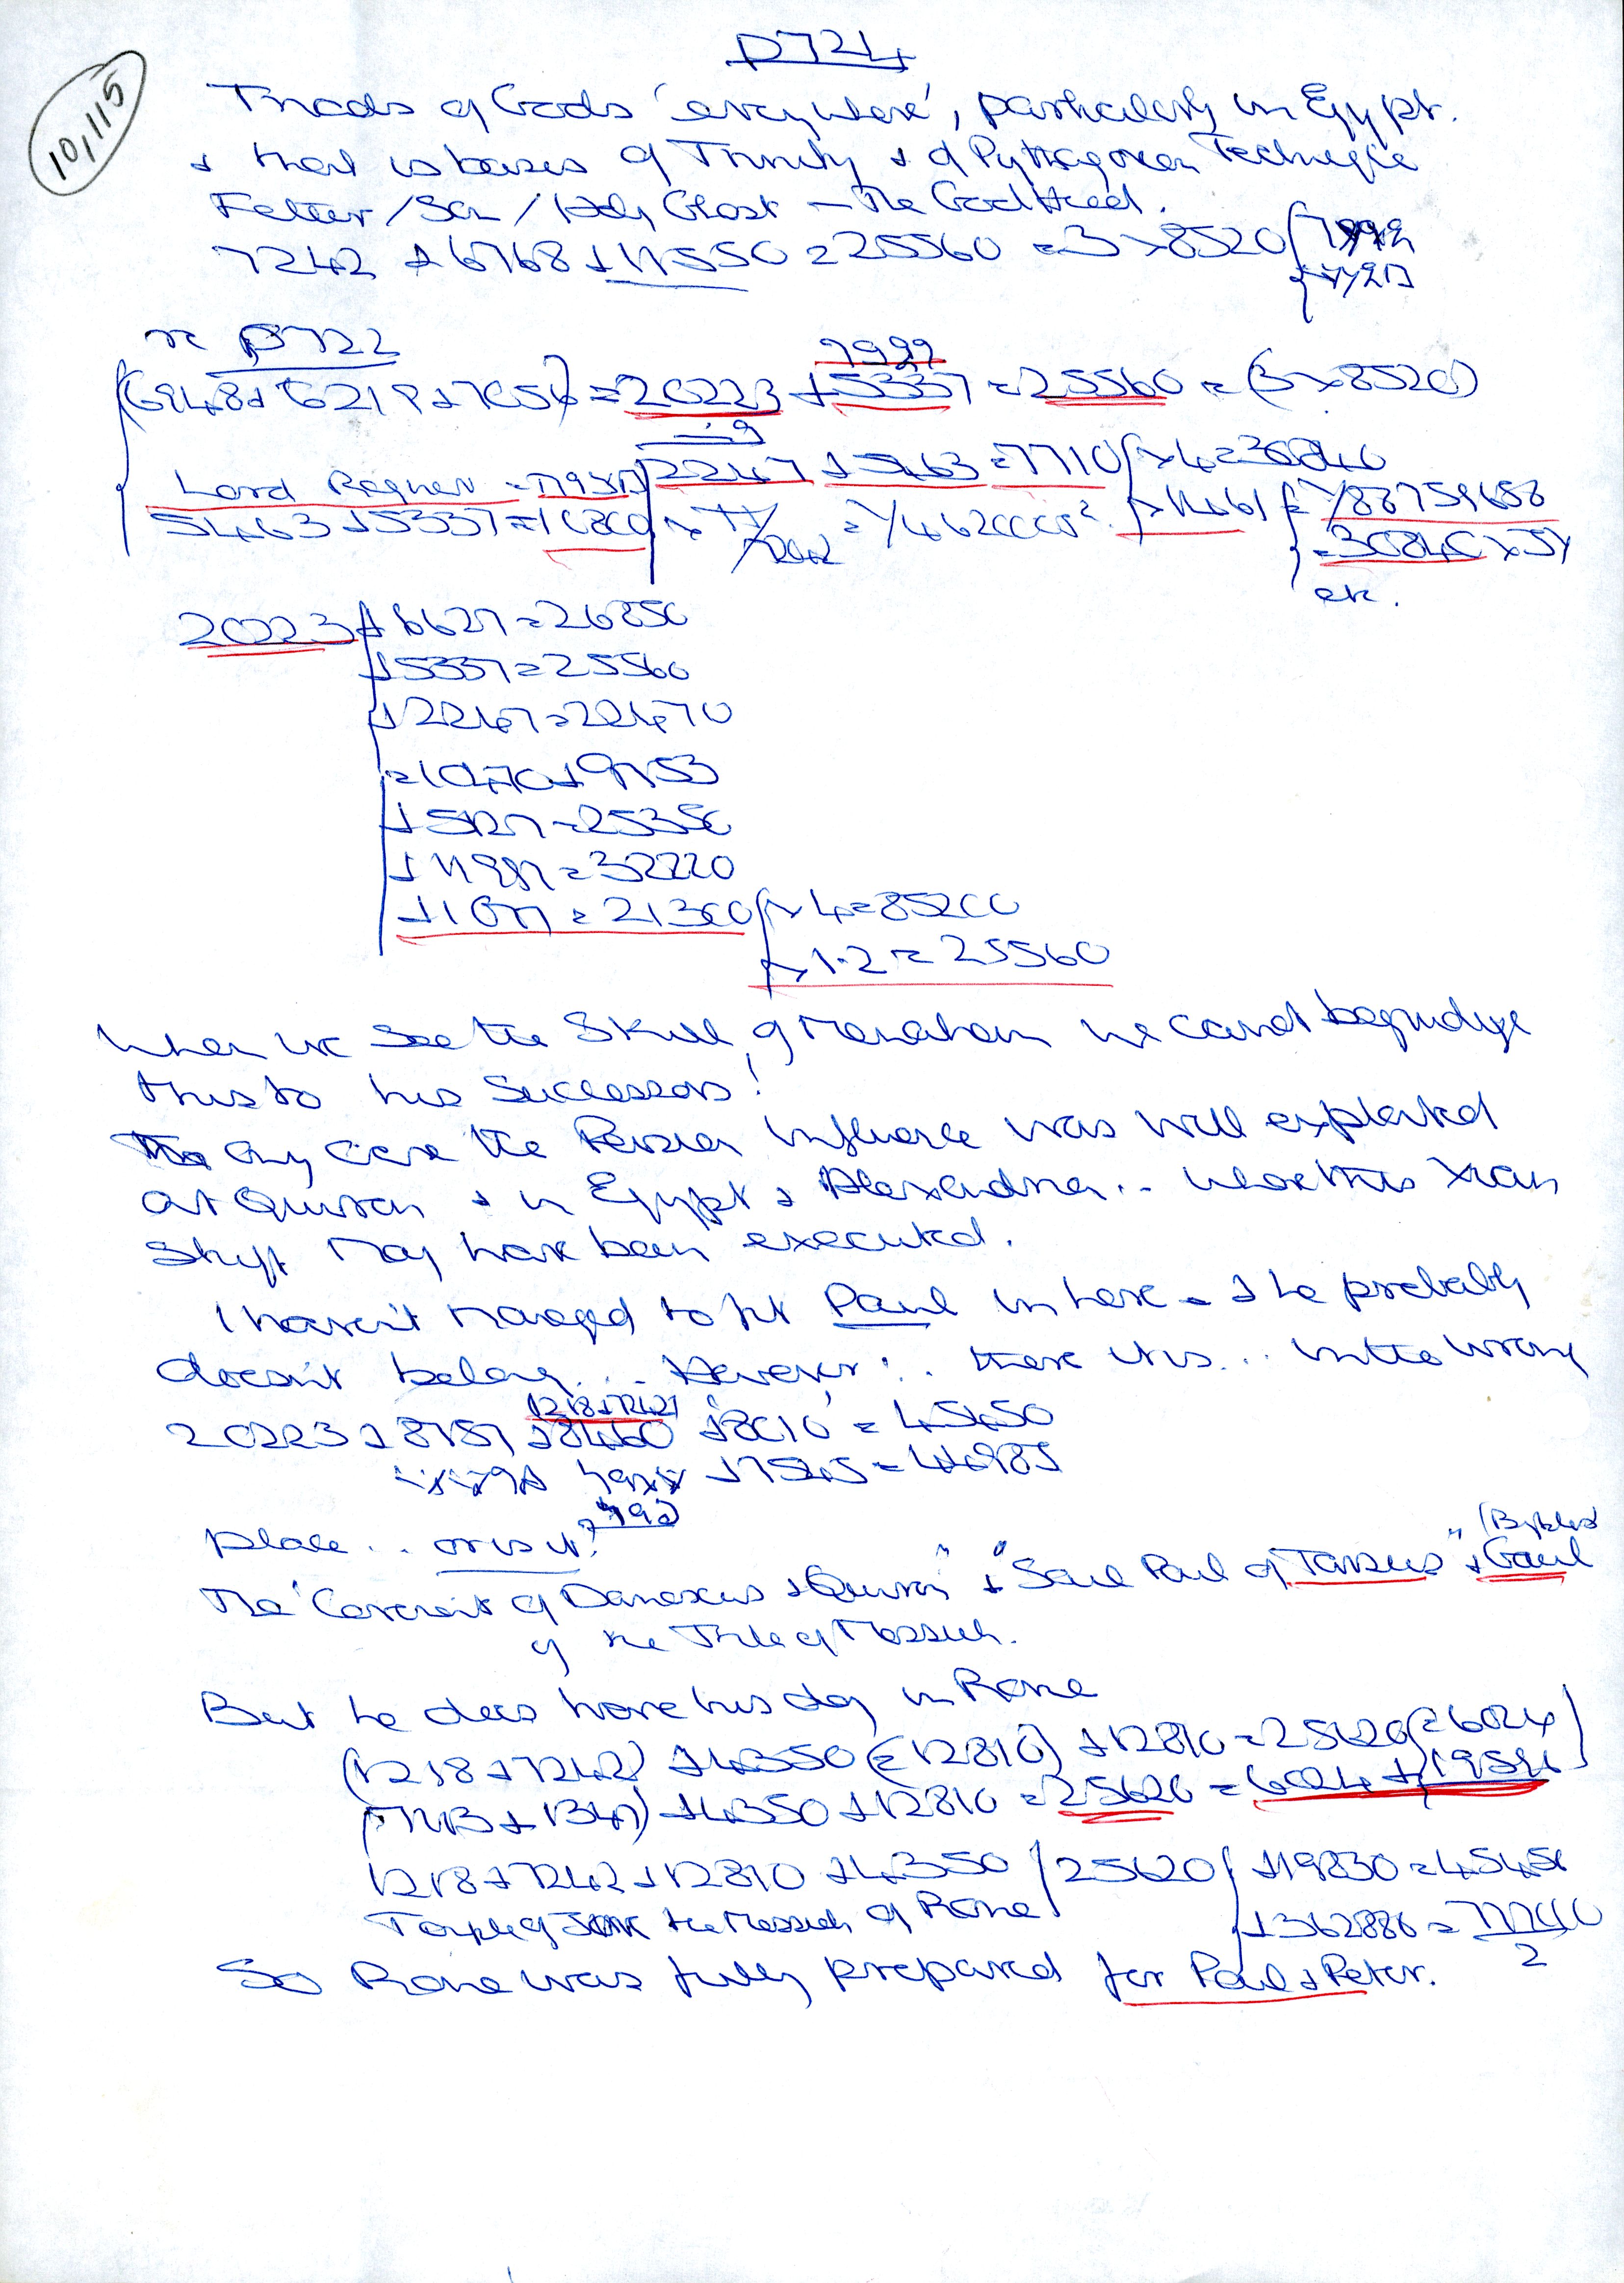 P724
10,115
Triads of Gods 'everywhere', particularly in Egypt.
& that is bases of Trinity & of Pythagorean Technique
Father / Son / Holy Ghost — The God Head.
7242 + 6768 + 11550 = 25560 = 3 × 8520
re P722
7999
(6948 + 6219 + 7056) = 20223 + 5337 = 25560 = (3 × 8520)
÷ 9
2247 + 5463 = 7710 × 4 = 30840
Lord Regnen
5463 + 5337 = 10800
= 30840 ×
etc.
20223 + 6627 = 26850
+ 5337 = 25560
+ 2247 = 22470
= 10470 + 9753
+ 5127 = 25350
+ 11997 = 32220
+ 1077 = 21300 × 4 = 85200
× 1.2 = 25560
When we see the Skill of we cannot begrudge
this to his Successors!
any case the Persian influence was well exploited
at Qumran & in Egypt & Alexandria .. where this
Shift may have been executed.
I haven't managed to fit Paul in here - & he probably
doesn't belong ... However! .. there it is ... in the wrong
1218 + 7242
20223 + 8757 + 8460 + 8010 = 45450
+ 7545 = 44985
place .. or is it?
The 'Covenant of Damascus & Qumran" & "Saul Paul of Tarsus" & Gaul
of the Title of Messiah.
But he does have his day in Rome
(1218 + 7242) + 4350 (= 12810) + 12810 = 25620 = 6024
(7113 + 1347) + 4350 + 12810 = 25620 = 6024 + 19596
1218 + 7242 + 12810 + 4350 25620 + 19830 = 45450
Temple of the Messiah of Rome
2
So Rome was fully prepared for Paul & Peter.